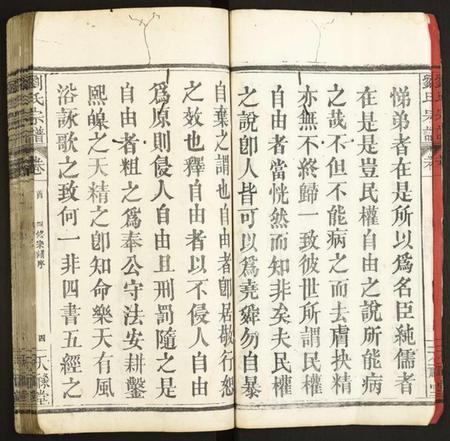 悌弟者在是所以爲名臣純儒者
在是是豈民權自由之說所能病
之哉不但不能病之而去膚抉精
亦無不終歸一致彼世所謂民權
自由者當恍然而知非矣夫民權
之說卽人皆可以爲堯舜勿自暴
自棄之謂也自由者卽居敬行恕
之效也釋自由者以不侵人自由
爲原則侵人自由且刑罰隨之是
自由者粗之爲奉公守法安耕鑿
熙皞之天精之卽知命樂天有風
浴詠歌之致何一非四書五經之
劉氏宗譜
卷
首
四